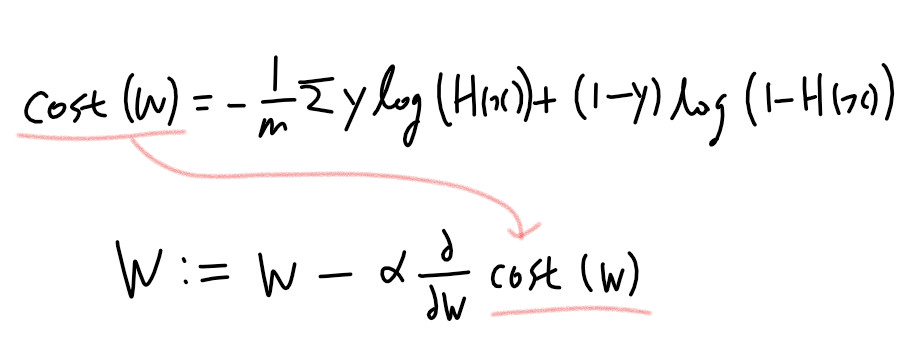 cost (W) = - 1/m Σ y log (H(x)) + (1-y) log (1-H(x))
W := W - α ∂/∂W cost (W)